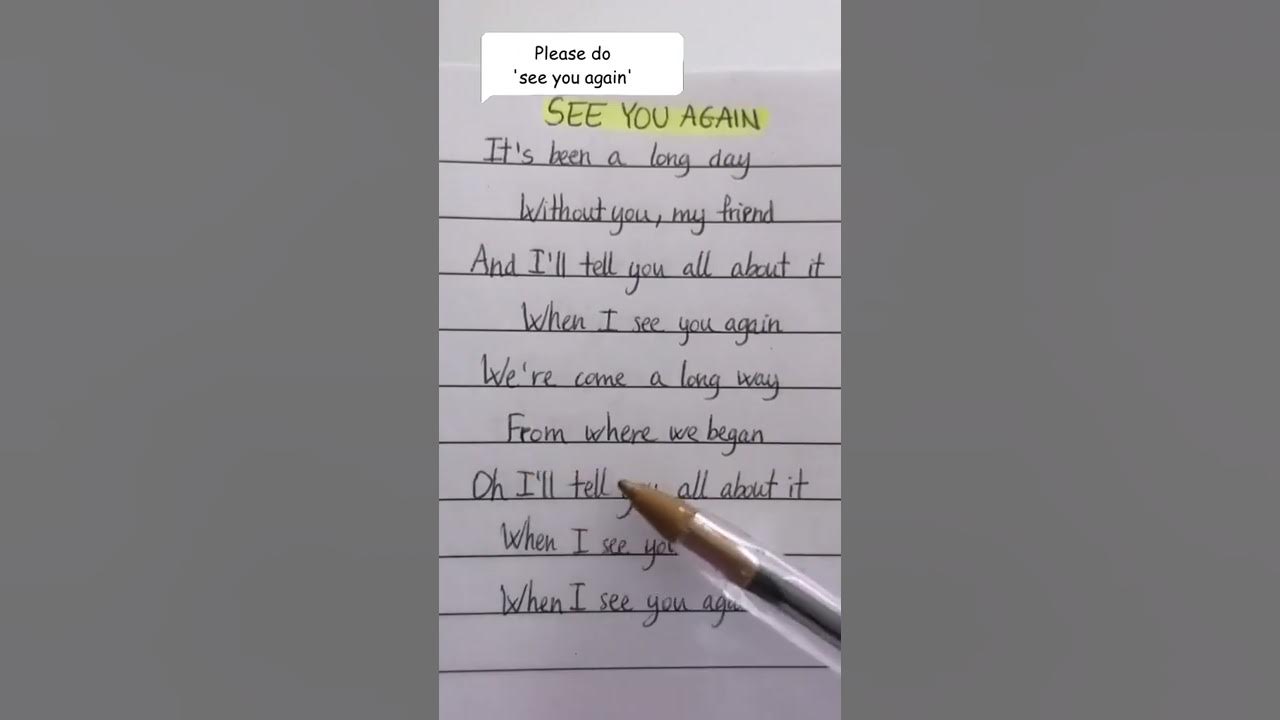 Please do
'see you again'
SEE YOU AGAIN
It's been a long day
Without you, my friend
And I'll tell you all about it
When I see you again
We're come a long way
From where we began
Oh I'll tell you all about it
When I see you
When I see you again